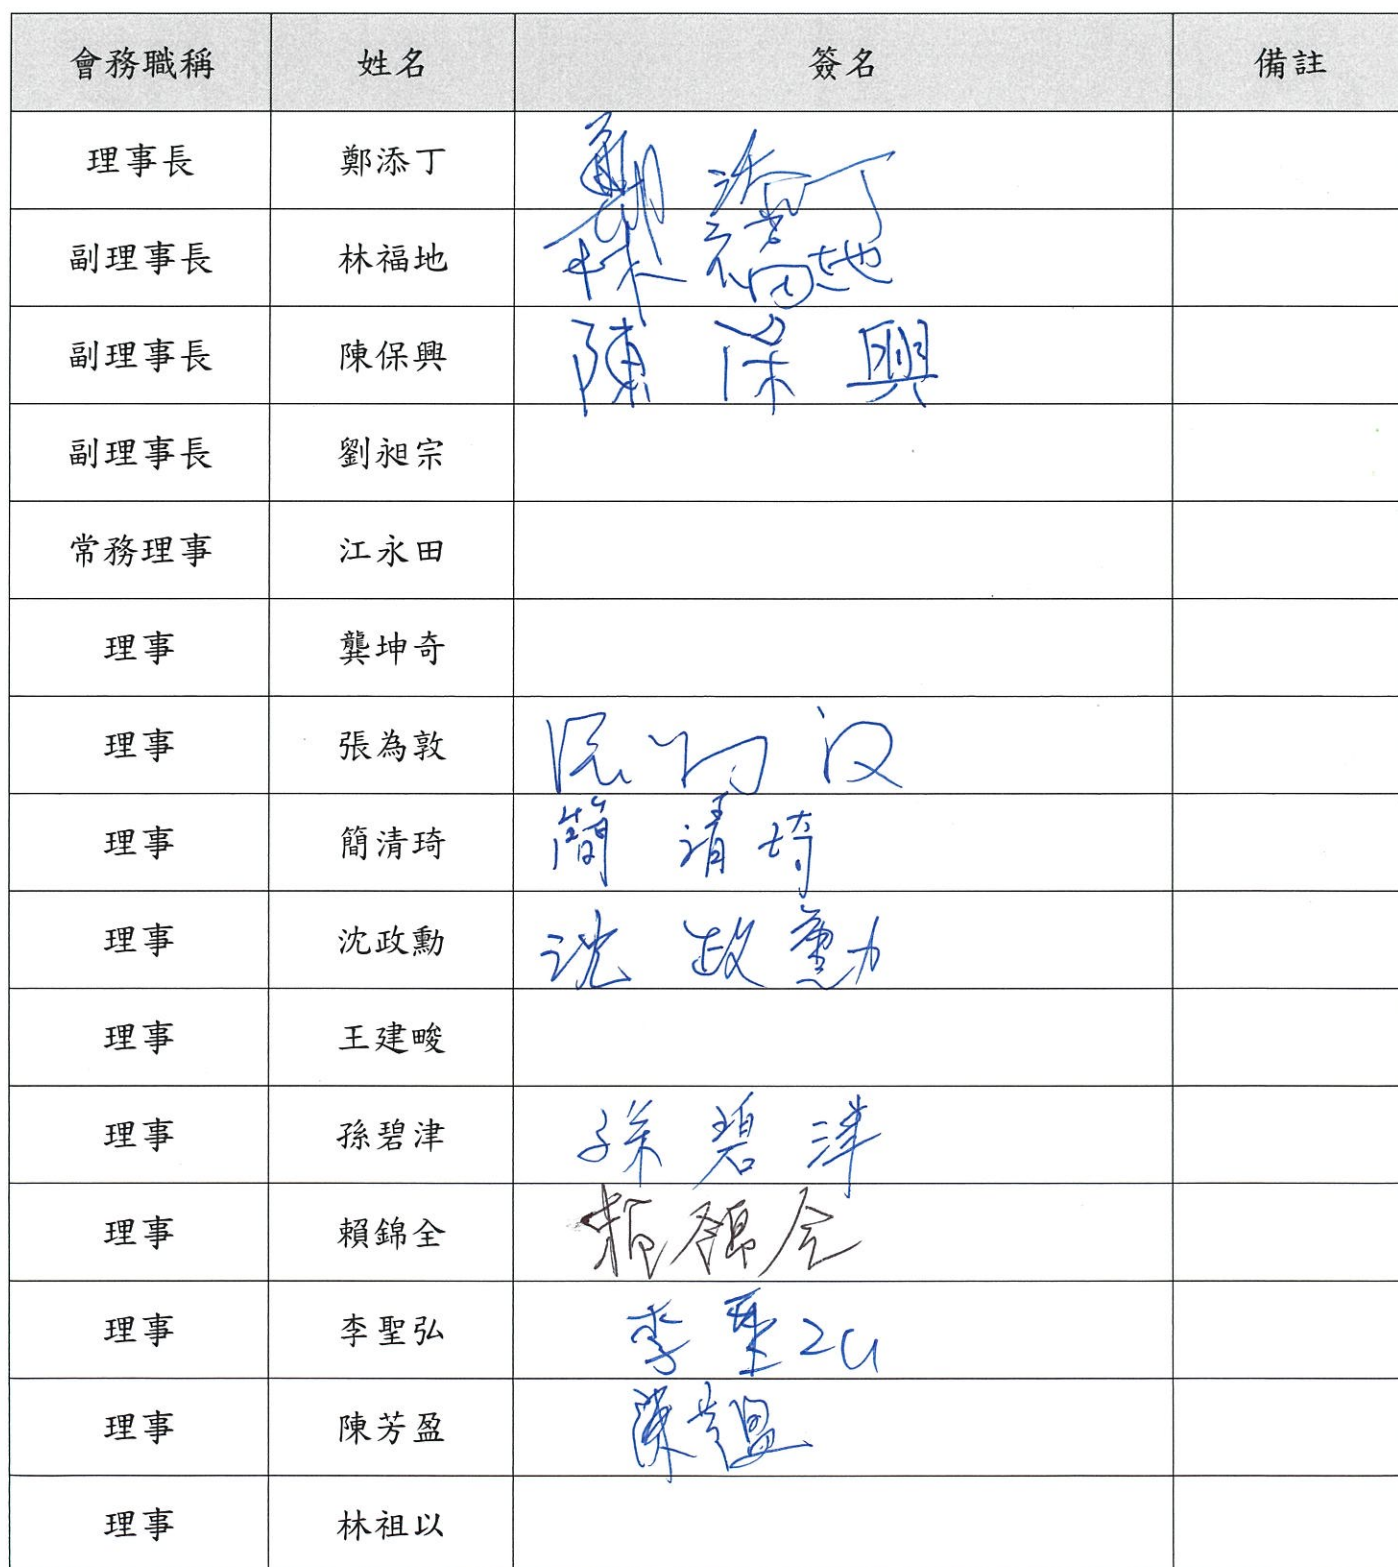 會務職稱 姓名 簽名 備註
理事長 鄭添丁 鄭添丁
副理事長 林福地 林福地
副理事長 陳保興 陳保興
副理事長 劉昶宗
常務理事 江永田
理事 龔坤奇
理事 張為敦
理事 簡清琦 簡清琦
理事 沈政勳 沈政勳
理事 王建畯
理事 孫碧津 孫碧津
理事 賴錦全 賴錦全
理事 李聖弘 李聖弘
理事 陳芳盈 陳芳盈
理事 林祖以